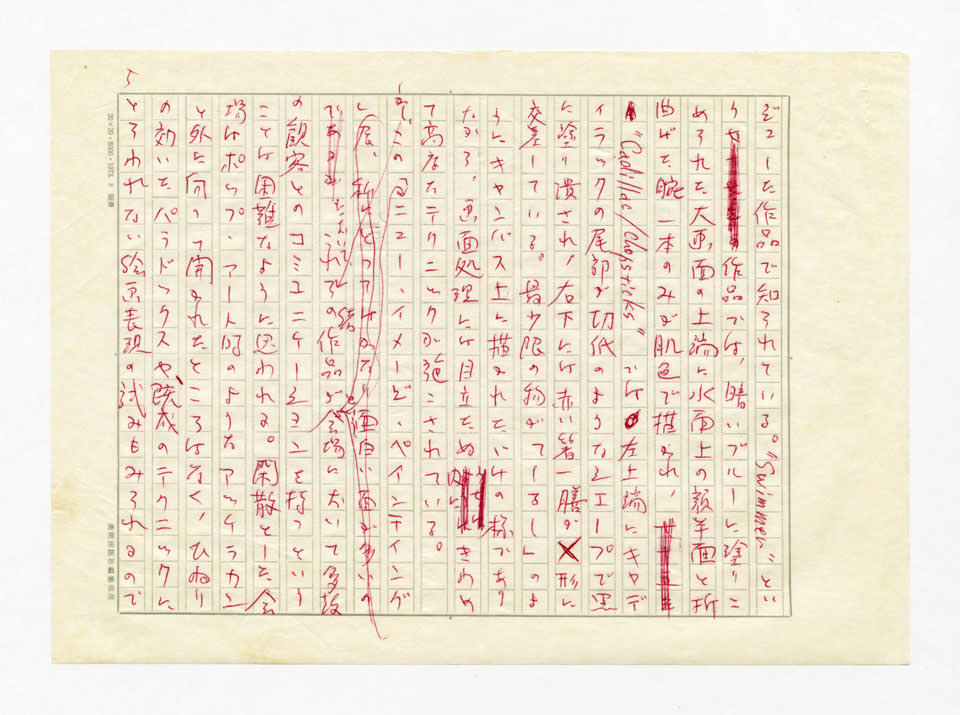 ぞこした作品で知られている。"Swimmer" とい
う作品では、暗いブルーに塗りこ
められた大画面の上端に水面上の額半面と折
曲げた腕一本のみが肌色で描かれ、
"Cadillac/Chopsticks" では左上端にキャデ
ィラックの尾部が切伐のようなシェープで黒
に塗り潰され、右下には赤い箸一膳が×形に
交差している。最少限の物が「しるし」のよ
うにキャンバス上に描かれただけの様であり
ながら、画面処理には目立たぬ内にきわめ
て高度なテクニックが施こされている。
このニュー・イメージ・ペインティング
展、私にとってはかなり面白い面が多いの
であるが、これらの作品が会場において多数
の観客とのコミュニケーションを持つという
ことは困難なように思われる。閑散とした会
場はポップ・アート時のようなアッケラカン
と外に向って開かれたところはなく、ひねり
の効いたパラドックスや、既成のテクニックに
とらわれない絵画表現の試みもみられるので
5
20×20・5000・1973.8 昭東
美術出版社編集部用